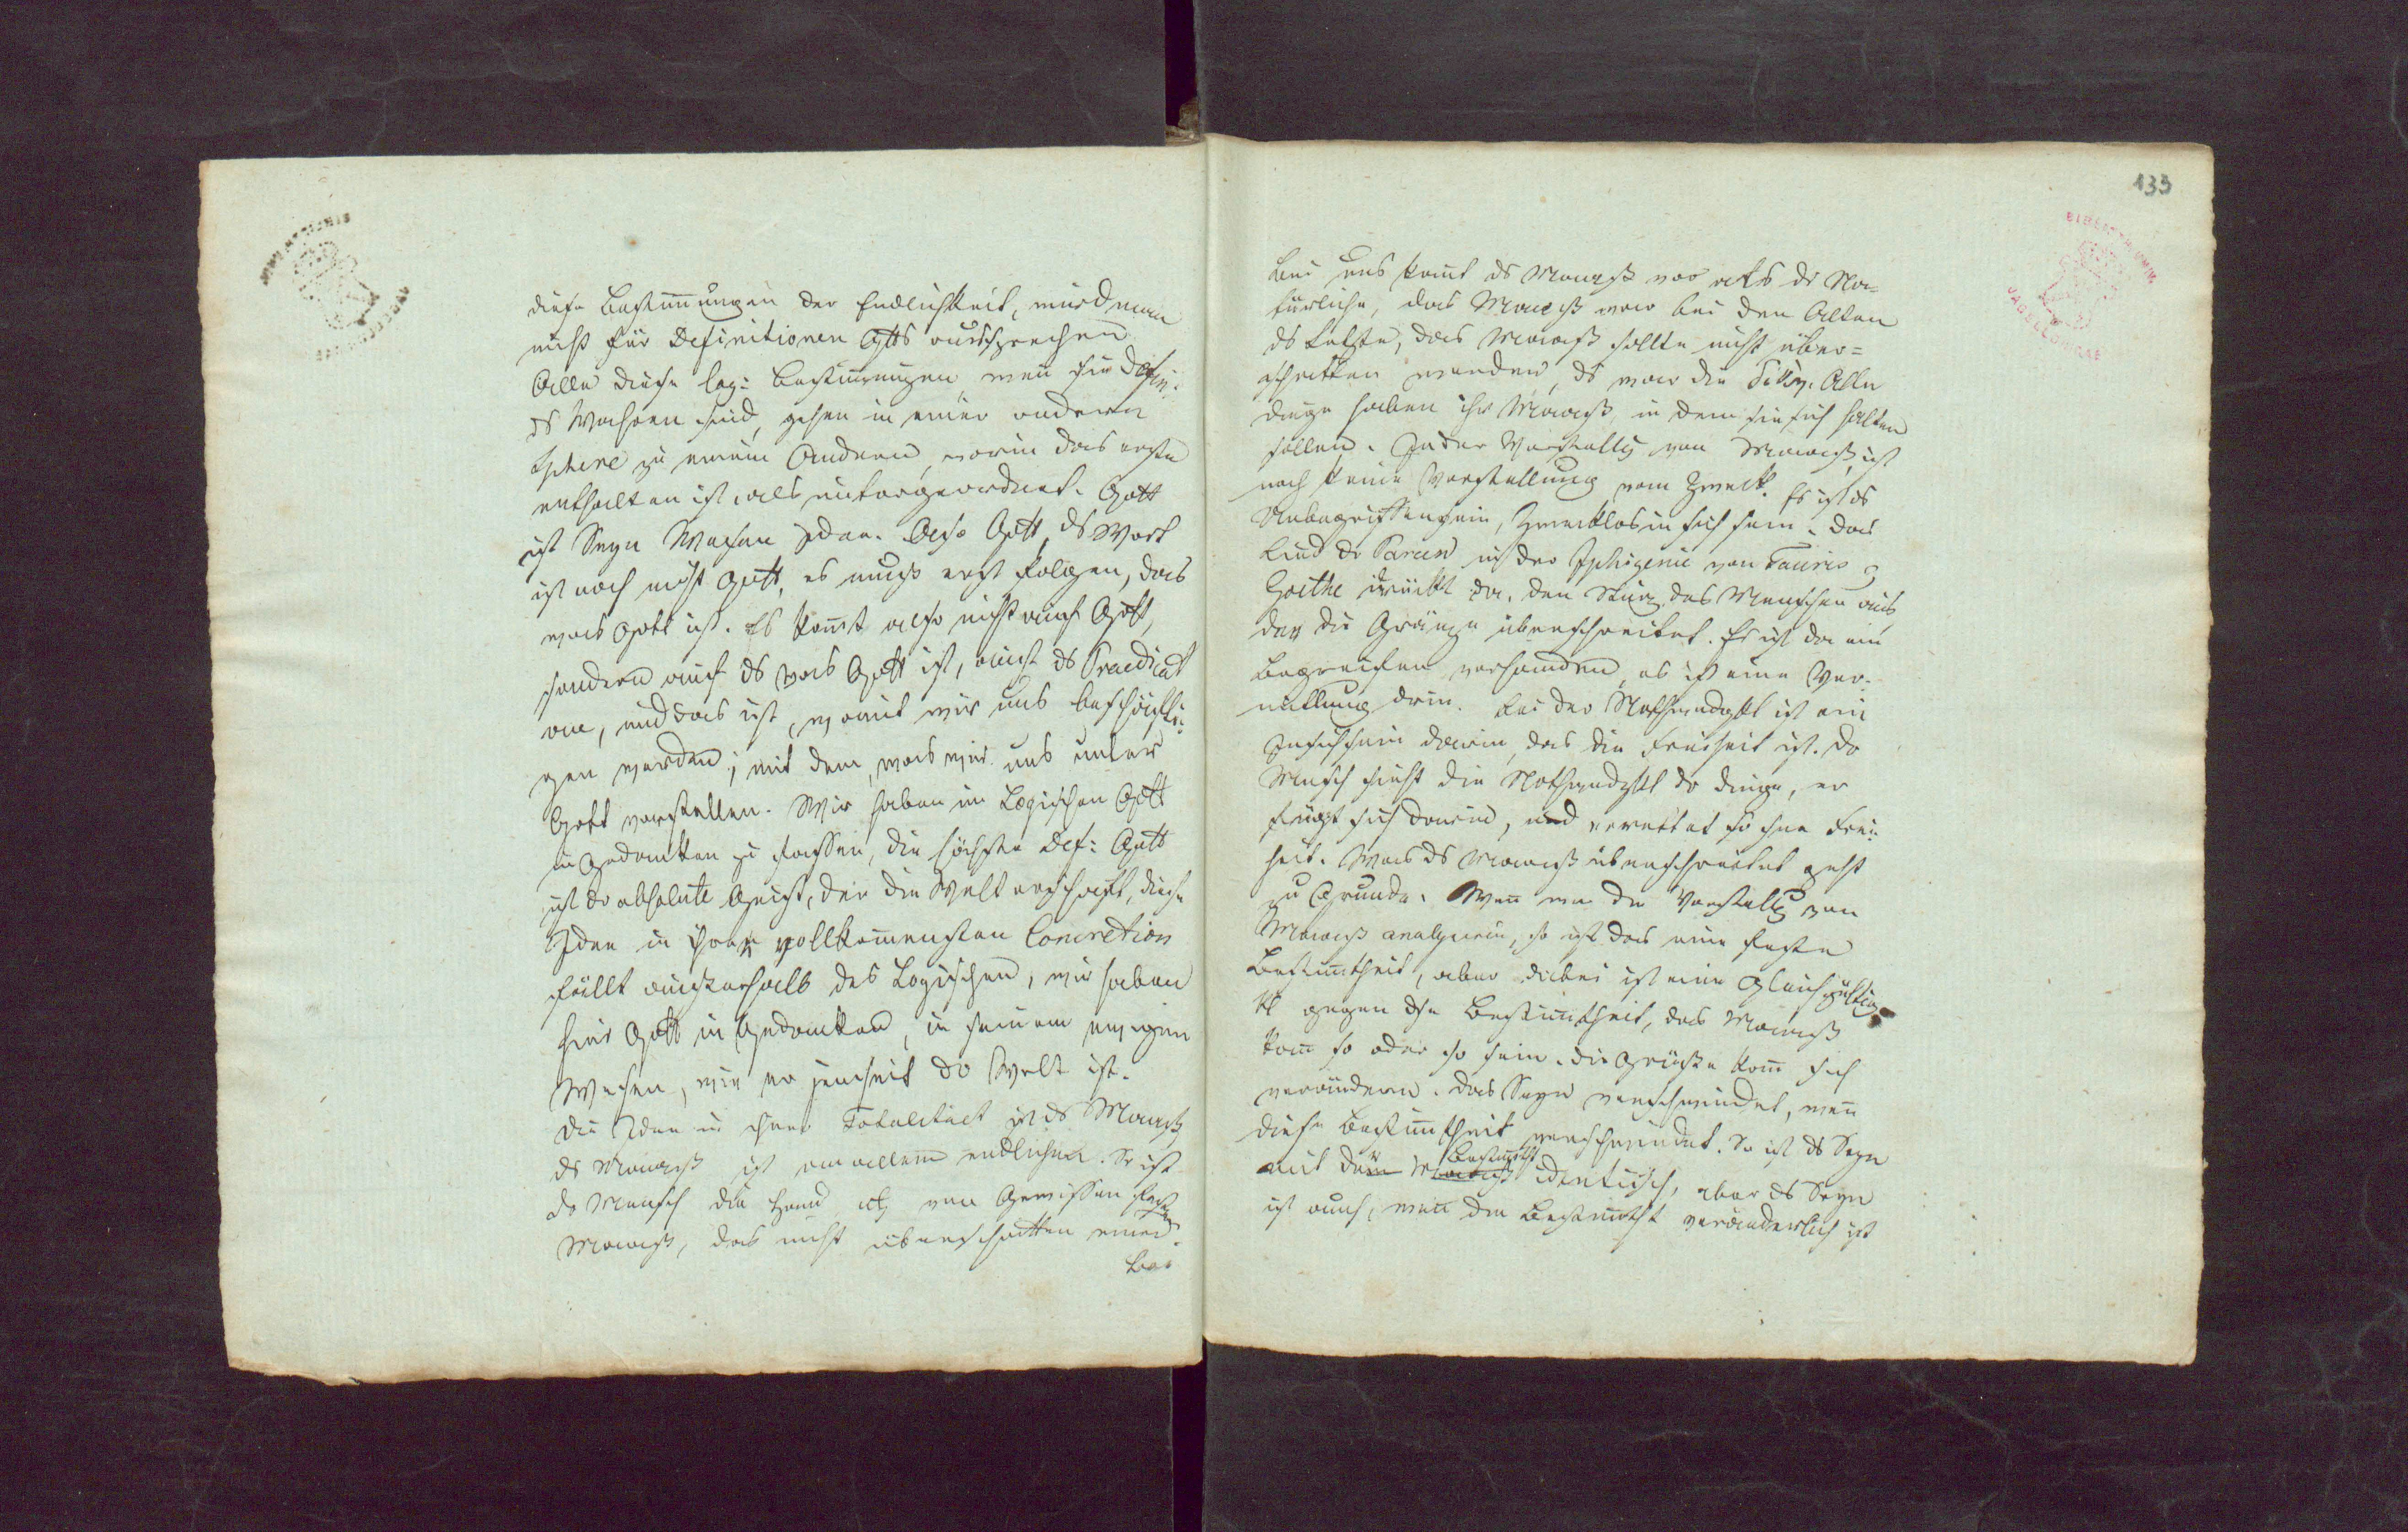 diese Bestimungen der Endlichkeit, wird man
nicht für Definitionen Gtts aussprechen
Alle diese log: Bestimungen wen sie Defin:
ds Wahren sind, gehen in einer andern
Sphere zu einem Andern, worin das erste
enthalten ist, als untergeordnet. Gott
ist Seyn Wesen Idee. Also Gott, ds Wort
ist noch nicht Gott, es muß erst folgen, das
was Gott ist. Es komt also nicht auf Gott,
sondern auf ds was Gott ist, auf ds Praedicat
an, und das ist, womit wir uns beschäfti:
gen werden; mit dem, was wir uns unter
Gott vorstellen. Wir haben im Logischen Gott
in Gedanken zu fassen, die höchste Def: Gott
ist dr absolute Geist, der die Welt erschaft, diese
Idee in ihrer vollkomensten Concretion
fällt außerhalb des Logischen, wir haben
hier Gott in Gedanken, in seinem ewigen
Wesen, wie er jenseit dr Welt ist.
Die Idee in ihrer Totalitaet ist ds Maaß
ds Maaß ist an allem endlichen. So ist
dr Mensch die Hand etc von Gewissen festen
Maaß, das nicht überschritten wird.
Bei
133
Bei uns komt ds Maaß vor als ds Na=
türliche, das Maaß war bei den Alten
ds Letzte, das Maaß sollte nicht über=
schritten werden, ds war die Δίκη. Alle
Dinge haben ihr Maaß, in dem sie sich halten
sollen. In der Vorstellg von Maaß ist
noch keine Vorstellung vom Zweck. Es ist ds
Unbegriffensein, Zwecklos in sich sein. Das
Lied dr Parcen in der Iphigenie von Tauris v
Goethe drückt da, den Sturz des Menschen aus,
der die Gränze überschreitet. Es ist da ein
Begreifen vorhanden, es ist eine Ver=
mittlung drin. Bei der Nothwendgkt ist ein
Insichsein darin, das die Freiheit ist. Dr
Mensch sieht die Nothwendgkt dr Dinge, er
fügt sich darin, und errettet so ihre Frei=
heit. Was ds Maaß überschreitet geht
zu Grunde. Wen wir die Vorstellg von
Maaß analysiren, so ist das eine feste
Bestimtheit, aber dabei ist eine Gleichgültig
kt gegen die Bestimtheit, das Maaß
kan so oder so sein. Die Größe kan sich
verändern. Das Seyn verschwindet, wen
diese Bestimtheit verschwindet. So ist ds Seyn
mit der Bestimtht identisch, aber ds Seyn
ist auch, wen die Bestimtht veränderlich ist